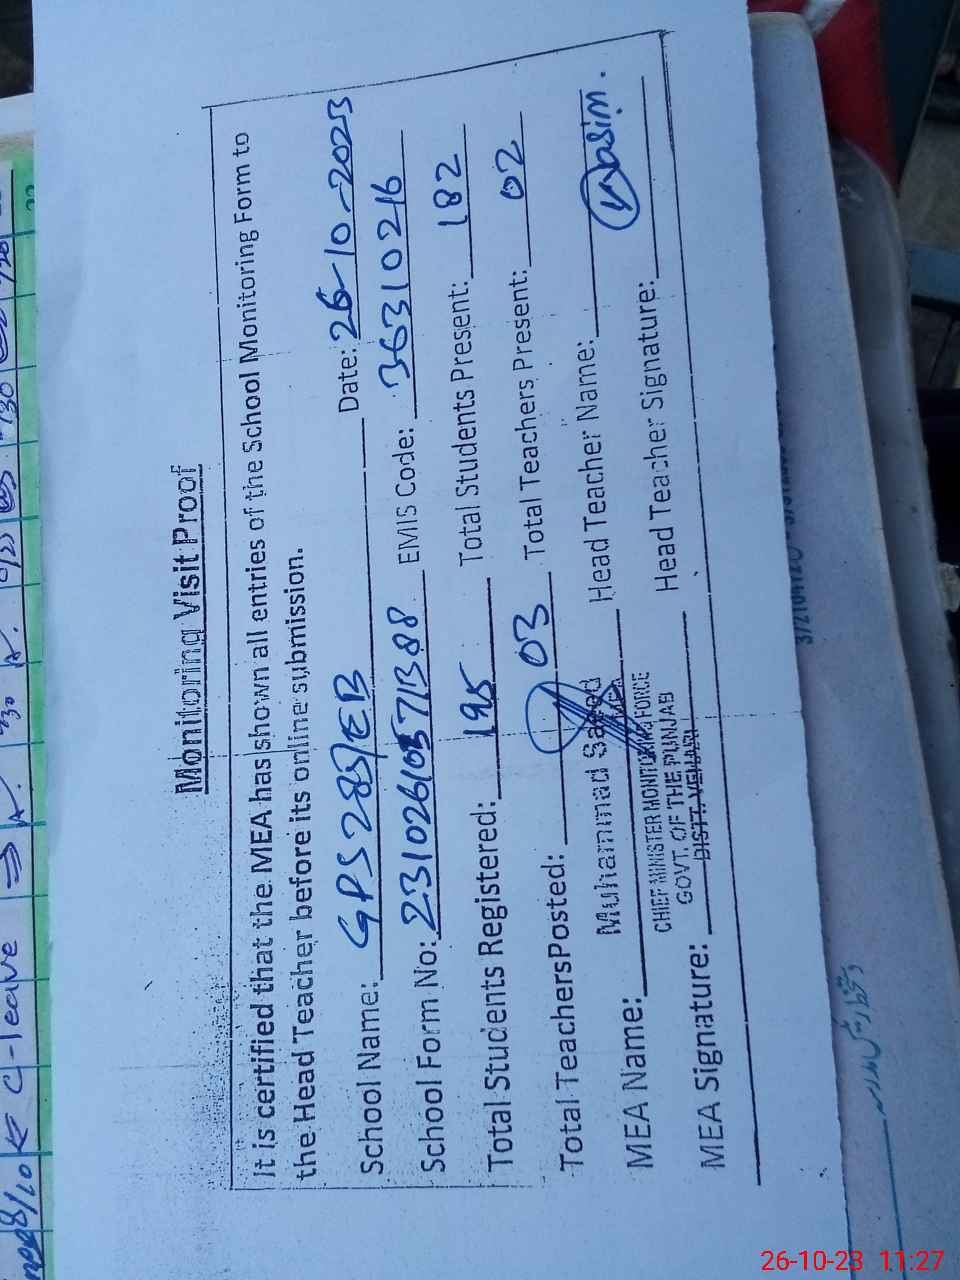 Monitoring Visit Proof
It is certified that the MEA has shown all entries of the School Monitoring Form to
the Head Teacher before its online submission.
School Name: GPS 285/EB Date: 26-10-2023
School Form No: 23102610571388 EMIS Code: 36310216
Total Students Registered: 195 Total Students Present: 182
Total TeachersPosted: 03 Total Teachers Present: 02
MEA Name: Muhammad Saeed Head Teacher Name: Wasim.
MEA
CHIEF MINISTER MONITORING FORCE
GOVT. OF THE PUNJAB
DISTT. VEHARI
MEA Signature: Head Teacher Signature:
C-leave
26-10-23 11:27